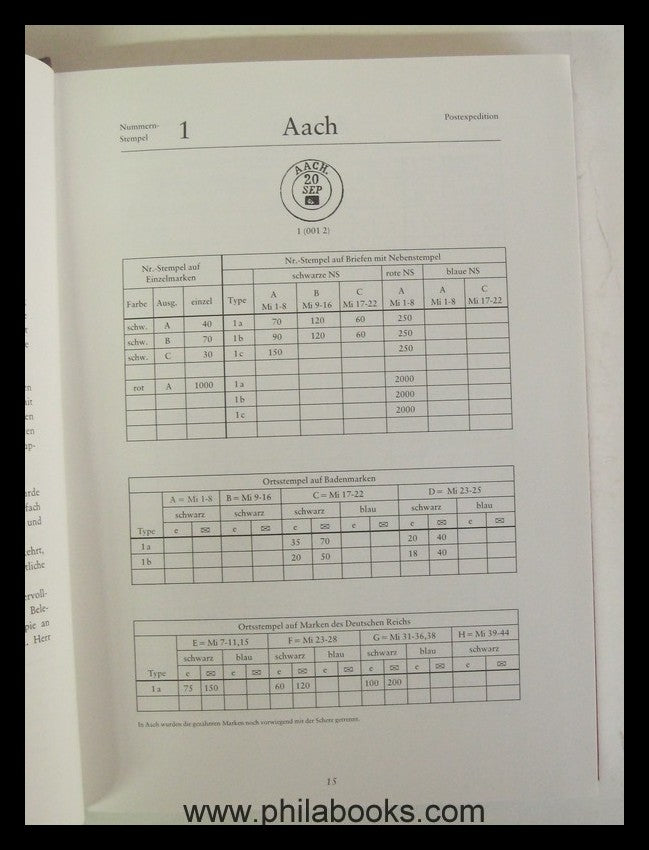 Nummern- 1 Aach Postexpedition
Stempel
AACH.
20
SEP
1 (001 2)
Nr.-Stempel auf Einzelmarken Nr.-Stempel auf Briefen mit Nebenstempel
schwarze NS rote NS blaue NS
Farbe Ausg. einzel Type A Mi 1-8 B Mi 9-16 C Mi 17-22 A Mi 1-8 A Mi 1-8 C Mi 17-22
schw. A 40 1a 70 120 60 250
schw. B 70 1b 90 120 60 250
schw. C 30 1c 150 250
rot A 1000 1a 2000
1b 2000
1c 2000
Ortsstempel auf Badenmarken
A = Mi 1-8 B = Mi 9-16 C = Mi 17-22 D = Mi 23-25
schwarz schwarz schwarz blau schwarz blau
Type e ✉ e ✉ e ✉ e ✉ e ✉ e ✉
1a 35 70 20 40
1b 20 50 18 40
Ortsstempel auf Marken des Deutschen Reichs
E = Mi 7-11,15 F = Mi 23-28 G = Mi 31-36,38 H = Mi 39-44
schwarz blau schwarz blau schwarz blau schwarz
Type e ✉ e ✉ e ✉ e ✉ e ✉ e ✉ e ✉
1a 75 150 60 120 100 200
In Aach wurden die gezähnten Marken noch vorwiegend mit der Schere getrennt.
15
en
it
en
en
ap-
rde
fach
und
ehrt,
tliche
rvoll-
Bele-
pie an
. Herr
www.philabooks.com